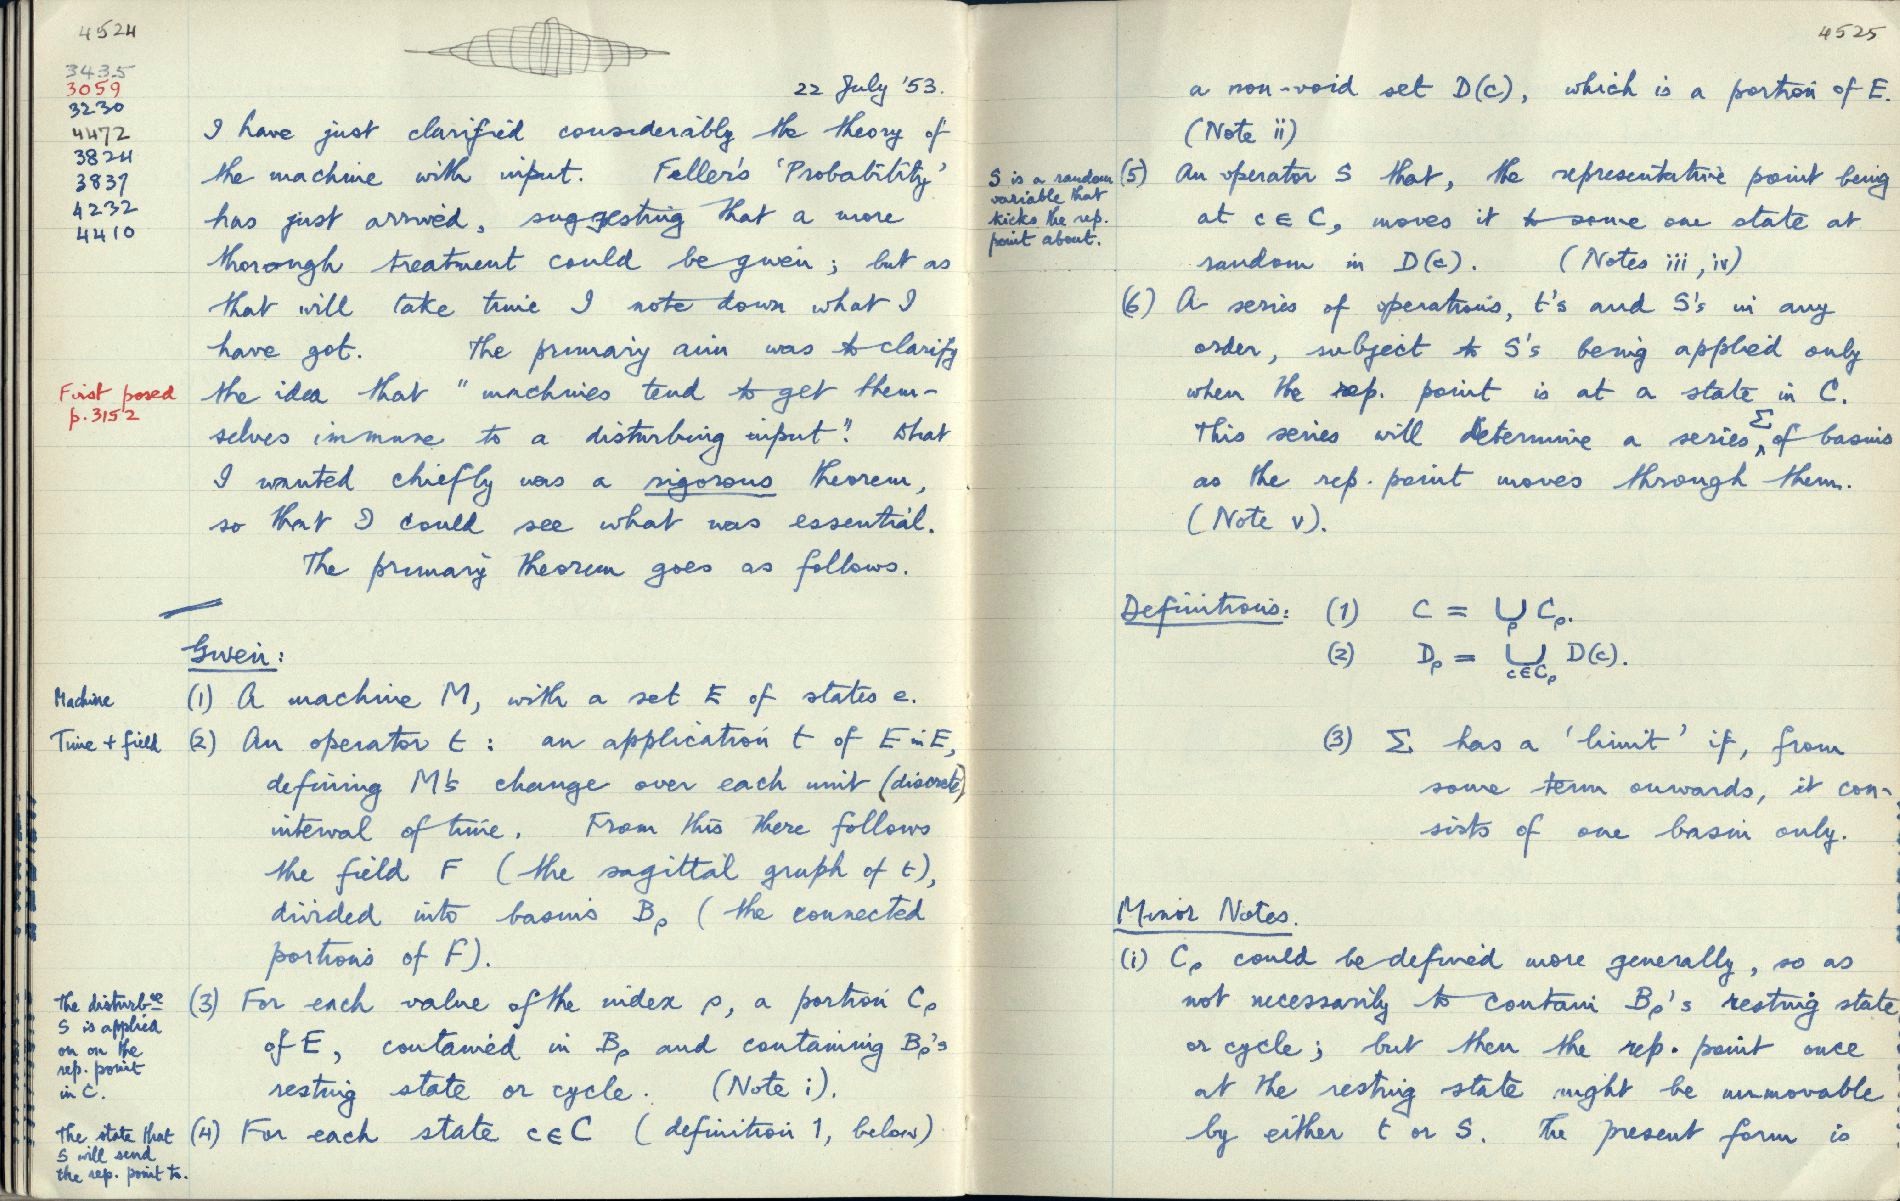 4524
3435
3059
3230
4472
3824
3837
4232
4410
22 July '53.
I have just clarified considerably the theory of
the machine with input. Feller's 'Probability'
has just arrived, suggesting that a more
thorough treatment could be given; but as
that will take time I note down what I
have got. The primary aim was to clarify
First posed
p. 3152
the idea that "machines tend to get them-
selves immune to a disturbing input". What
I wanted chiefly was a rigorous theorem,
so that I could see what was essential.
The primary theorem goes as follows.
Given:
Machine
(1) A machine M, with a set E of states e.
Time + field
(2) An operator t: an application t of E in E,
defining M's change over each unit (discrete)
interval of time. From this there follows
the field F (the sagittal graph of t),
divided into basins Bρ (the connected
portions of F).
The disturbce
S is applied
on on the
rep. point
in C.
(3) For each value of the index ρ, a portion Cρ
of E, contained in Bρ and containing Bρ's
resting state or cycle. (Note i).
The state that
S will send
the rep. point to.
(4) For each state c ∈ C (definition 1, below)
4525
a non-void set D(c), which is a portion of E.
(Note ii)
S is a random
variable that
kicks the rep.
point about.
(5) An operator S that, the representative point being
at c ∈ C, moves it to some one state at
random in D(c). (Notes iii, iv)
(6) A series of operations, t's and S's in any
order, subject to S's being applied only
when the rep. point is at a state in C.
This series will determine a series Σ of basins
as the rep. point moves through them.
(Note v).
Definitions: (1) C = ⋃ρ Cρ.
(2) Dρ = ⋃c∈Cρ D(c).
(3) Σ has a 'limit' if, from
some term onwards, it con-
sists of one basin only.
Minor Notes.
(i) Cρ could be defined more generally, so as
not necessarily to contain Bρ's resting state
or cycle; but then the rep. point once
at the resting state might be unmovable
by either t or S. The present form is